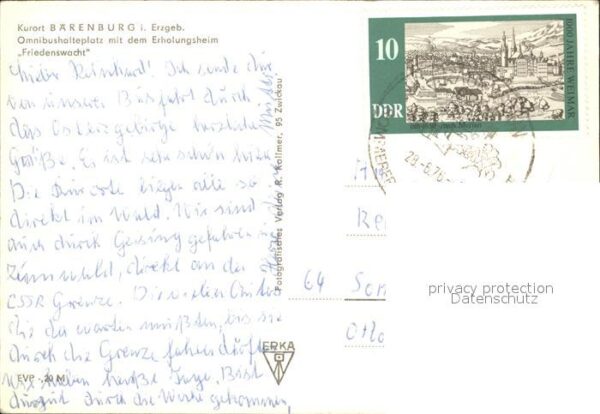 Kurort BÄRENBURG i. Erzgeb.
Omnibushalteplatz mit dem Erholungsheim
„Friedenswacht"
Lieber Reinhard! Ich sende dir
von unserer Busfahrt durch
das Osterzgebirge herzliche
Grüße. Es ist sehr schön hier.
Die Kurorte liegen alle so
direkt im Wald. Wir sind
auch durch Geising gefahren
Zinnwald, direkt an der
ČSSR Grenze. Die vielen
die da warten mußten, bis sie
durch die Grenze fahren
Wir haben heiße Tage. Bist
du gut durch die Woche gekommen,
Mutti
EVP -,20 M
Fotografischer Verlag R. Kallmer, 95 Zwickau
ERKA
10
DDR
1000 JAHRE WEIMAR
28.-6.76
64 Son
privacy protection
Datenschutz